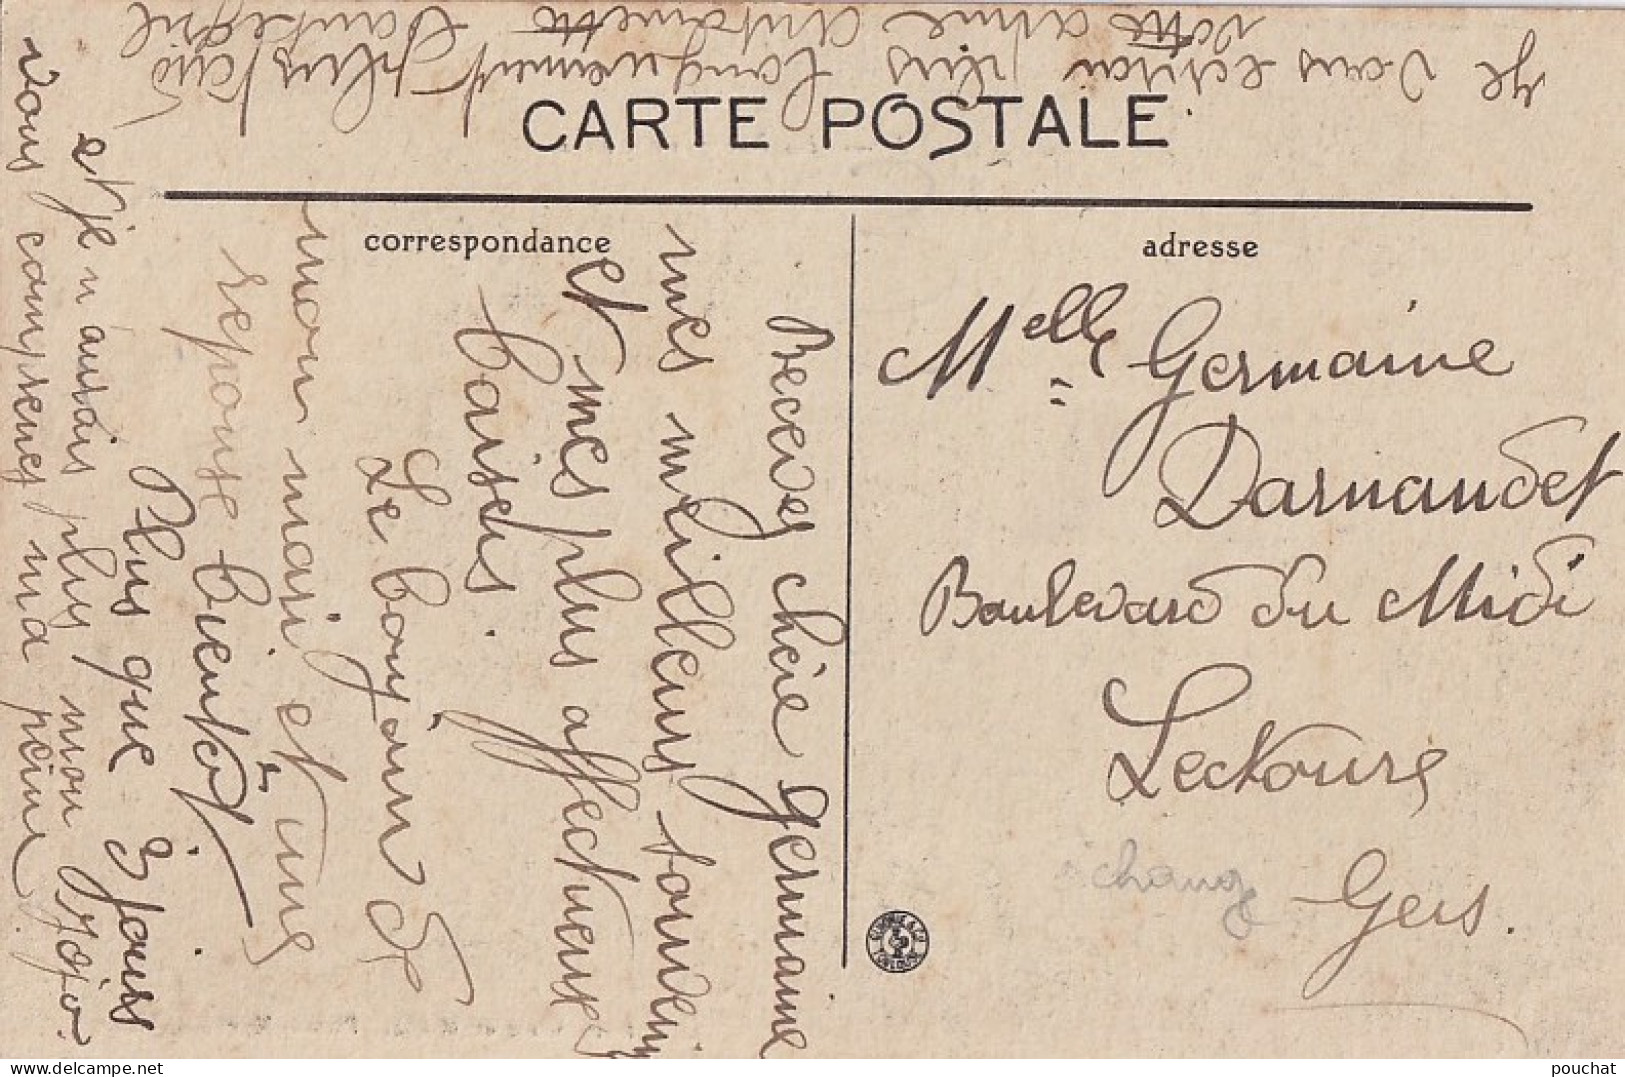 CARTE POSTALE
correspondance
adresse
Recevez chère Germaine
mes meilleurs souvenirs
et mes plus affectueux
baisers.
Le bonjour de
mon mari et une
réponse bientôt.
Plus que 3 jours
et je n'aurais plus mon Jojo.
vous comprenez ma peine
Je vous écrirai plus longuement plus tard
votre amie antoinette
Melle Germaine
Darnaudet
Boulevard du Midi
Lectoure
Gers.
échange
delcampe.net
pouchat